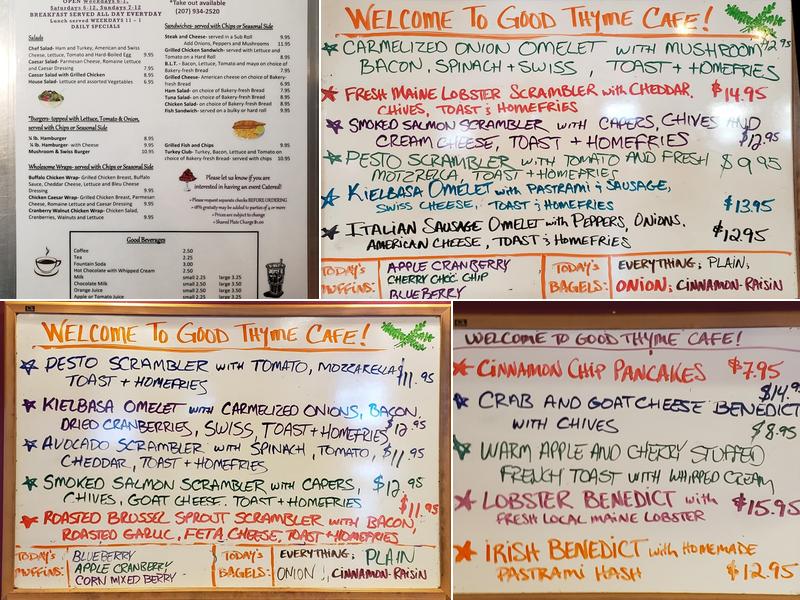 OPEN Weekdays 6-1,
Saturdays 6-12, Sundays 7-12
BREAKFAST SERVED ALL DAY EVERYDAY
Lunch served WEEKDAYS 11 - 1
DAILY SPECIALS
*Take out available
(207) 934-2520
Salads
Chef Salad- Ham and Turkey, American and Swiss
Cheese, Lettuce, Tomato and Hard-Boiled Egg 9.95
Caesar Salad- Parmesan Cheese, Romaine Lettuce
and Caesar Dressing 7.95
Caesar Salad with Grilled Chicken 8.95
House Salad- Lettuce and assorted Vegetables 6.95
*Burgers- topped with Lettuce, Tomato & Onion,
served with Chips or Seasonal Side
¼ lb. Hamburger 8.95
¼ lb. Hamburger with Cheese 9.95
Mushroom & Swiss Burger 10.95
Wholesome Wraps- served with Chips or Seasonal Side
Buffalo Chicken Wrap- Grilled Chicken Breast, Buffalo
Sauce, Cheddar Cheese, Lettuce and Bleu Cheese
Dressing 9.95
Chicken Caesar Wrap- Grilled Chicken Breast, Parmesan
Cheese, Romaine Lettuce and Caesar Dressing 9.95
Cranberry Walnut Chicken Wrap- Chicken Salad,
Cranberries, Walnuts and Lettuce 9.95
Sandwiches- served with Chips or Seasonal Side
Steak and Cheese- served in a Sub Roll 9.95
Add Onions, Peppers and Mushrooms 11.95
Grilled Chicken Sandwich- served with Lettuce and
Tomato on a Hard Roll 8.95
B.L.T.- Bacon, Lettuce, Tomato and mayo on choice of
Bakery-fresh Bread 7.95
Grilled Cheese- American cheese on choice of Bakery-
fresh Bread 6.95
Ham Salad- on choice of Bakery-fresh Bread 7.95
Tuna Salad- on choice of Bakery-fresh Bread 8.95
Chicken Salad- on choice of Bakery-fresh Bread 8.95
Fish Sandwich- served on a bulky or hard roll 9.95
Grilled Fish and Chips 9.95
Turkey Club- Turkey, Bacon, Lettuce and Tomato on
choice of Bakery-fresh Bread- served with chips 10.95
Please let us know if you are
interested in having an event Catered!
• Please request separate checks BEFORE ORDERING
• 18% gratuity may be added to parties of 4 or more
• Prices are subject to change
• Shared Plate Charge $1.00
Good Beverages
Coffee 2.50
Tea 2.25
Fountain Soda 3.00
Hot Chocolate with Whipped Cream 2.50
Milk small 2.25 large 3.25
Chocolate Milk small 2.50 large 3.50
Orange Juice small 2.50 large 3.50
Apple or Tomato Juice small 2.25 large 3.25
WELCOME TO GOOD THYME CAFE!
CARMELIZED ONION OMELET WITH MUSHROOM $12.95
BACON, SPINACH + SWISS, TOAST + HOMEFRIES
FRESH MAINE LOBSTER SCRAMBLER WITH CHEDDAR, $14.95
CHIVES, TOAST & HOMEFRIES
SMOKED SALMON SCRAMBLER WITH CAPERS, CHIVES AND
CREAM CHEESE, TOAST + HOMEFRIES $12.95
PESTO SCRAMBLER WITH TOMATO AND FRESH $9.95
MOTZRELLA, TOAST + HOMEFRIES
KIELBASA OMELET WITH PASTRAMI & SAUSAGE,
SWISS CHEESE, TOAST & HOMEFRIES $13.95
ITALIAN SAUSAGE OMELET WITH PEPPERS, ONIONS,
AMERICAN CHEESE, TOAST & HOMEFRIES $12.95
TODAY'S MUFFINS:
APPLE CRANBERRY
CHERRY CHOC CHIP
BLUEBERRY
TODAY'S BAGELS:
EVERYTHING; PLAIN;
ONION; CINNAMON-RAISIN
WELCOME TO GOOD THYME CAFE!
PESTO SCRAMBLER WITH TOMATO, MOZZARELLA, $11.95
TOAST + HOMEFRIES
KIELBASA OMELET WITH CARMELIZED ONIONS, BACON,
DRIED CRANBERRIES, SWISS, TOAST + HOMEFRIES $12.95
AVOCADO SCRAMBLER WITH SPINACH, TOMATO, $11.95
CHEDDAR, TOAST + HOMEFRIES
SMOKED SALMON SCRAMBLER WITH CAPERS, $12.95
CHIVES, GOAT CHEESE, TOAST + HOMEFRIES
ROASTED BRUSSEL SPROUT SCRAMBLER WITH BACON, $11.95
ROASTED GARLIC, FETA CHEESE, TOAST + HOMEFRIES
TODAY'S MUFFINS:
BLUEBERRY
APPLE CRANBERRY
CORN MIXED BERRY
TODAY'S BAGELS:
EVERYTHING; PLAIN
ONION; CINNAMON-RAISIN
WELCOME TO GOOD THYME CAFE!
CINNAMON CHIP PANCAKES $7.95
CRAB AND GOATCHEESE BENEDICT
WITH CHIVES $8.95
WARM APPLE AND CHERRY STUFFED
FRENCH TOAST WITH WHIPPED CREAM
LOBSTER BENEDICT WITH $15.95
FRESH LOCAL MAINE LOBSTER
IRISH BENEDICT WITH HOMEMADE
PASTRAMI HASH $12.95